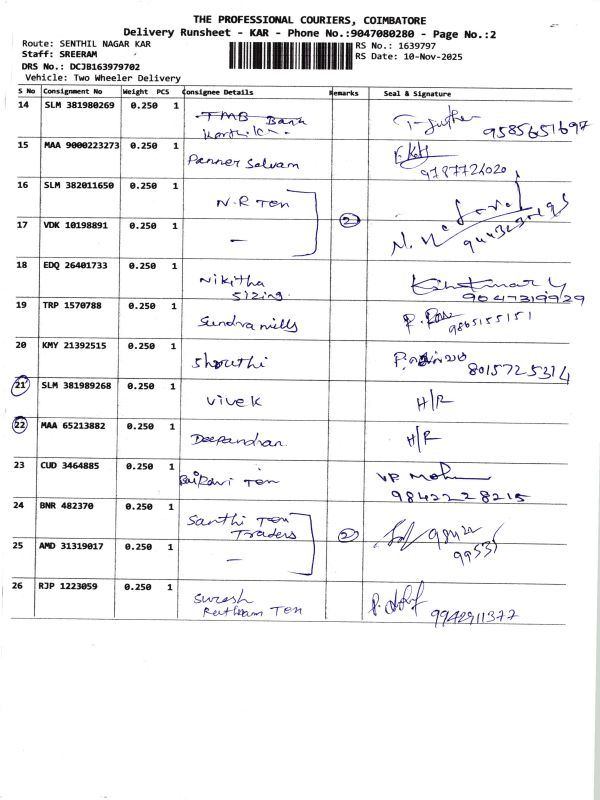 THE PROFESSIONAL COURIERS, COIMBATORE
Delivery Runsheet - KAR - Phone No.:9047080280 - Page No.:2
Route: SENTHIL NAGAR KAR
RS No.: 1639797
Staff: SREERAM
RS Date: 10-Nov-2025
DRS No.: DCJB163979702
Vehicle: Two Wheeler Delivery
S No Consignment No Weight PCS Consignee Details Remarks Seal & Signature
14 SLM 381980269 0.250 1 TMB Bank
9585651697
15 MAA 9000223273 0.250 1 Panner Selvam
9787726020
16 SLM 382011650 0.250 1 N.R Ten
2
17 VDK 10198891 0.250 1 —
18 EDQ 26401733 0.250 1 Nikitha
Sizing
9047319929
19 TRP 1570788 0.250 1 Sundra mills
9865155151
20 KMY 21392515 0.250 1 Shruthi
8015725314
21 SLM 381989268 0.250 1 Vivek H/R
22 MAA 65213882 0.250 1 Deepandran H/R
23 CUD 3464885 0.250 1 Bairavi Ten VP Mohan
9842228215
24 BNR 482370 0.250 1 Santhi Ten
Traders
2
25 AMD 31319017 0.250 1 —
26 RJP 1223059 0.250 1 Suresh
Rathnam Ten
9942911377